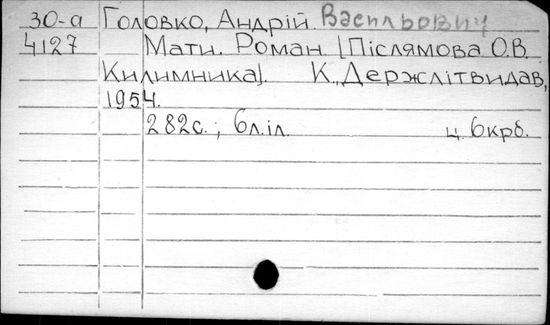 30-а Головко, Андрій Васильович
4127 Мати. Роман. [Післямова О.В.
Килимника]. К., Держлітвидав,
1954.
282с.; 6л.іл. ц. 6крб.